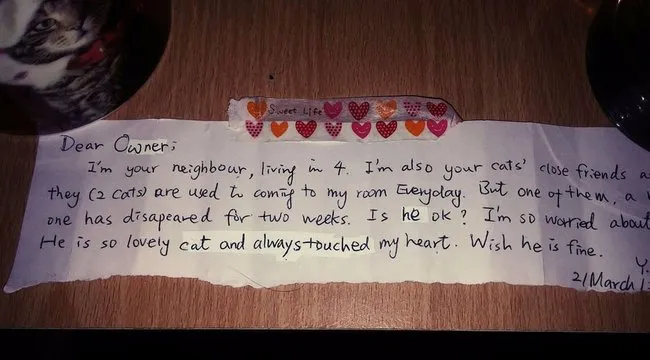 Sweet Life
Dear Owner;
I'm your neighbour, living in 4. I'm also your cats' close friends a
they (2 cats) are used to coming to my room Everyday. But one of them, a
one has disapeared for two weeks. Is he ok? I'm so worried about
He is so lovely cat and always touched my heart. Wish he is fine.
Y.
21 March